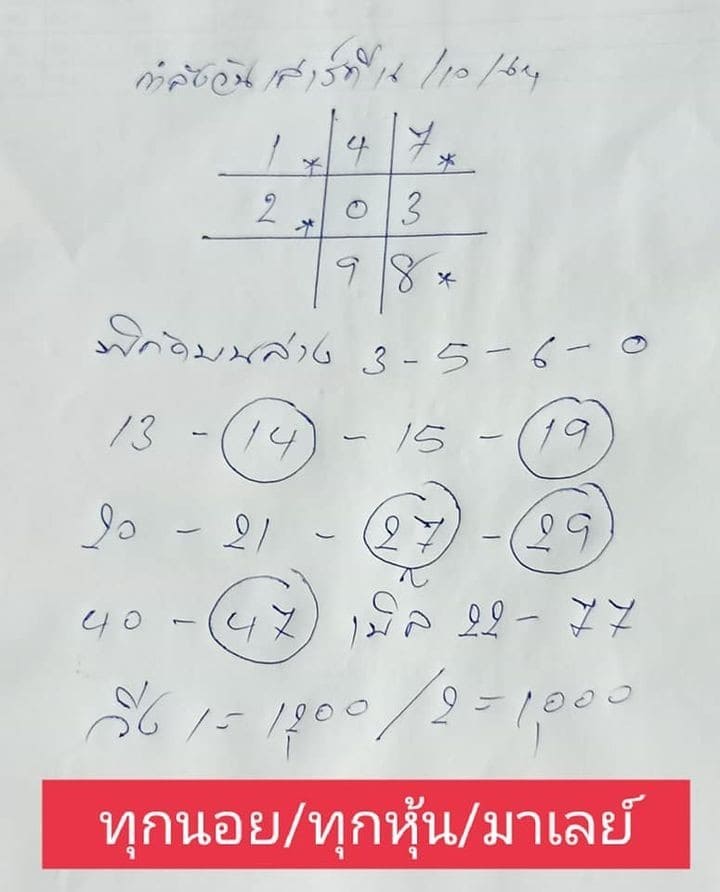 กำลังวันเสาร์ที่ /10/
1* 4 7*
2* 0 3
9 8*
พิกัดบนล่าง 3-5-6-0
13 - 14 - 15 - 19
20 - 21 - 27 - 29
40 - 47 เบิ้ล 22 - 77
วิ่ง 1=1,200 / 2=1,000
ทุกนอย/ทุกหุ้น/มาเลย์